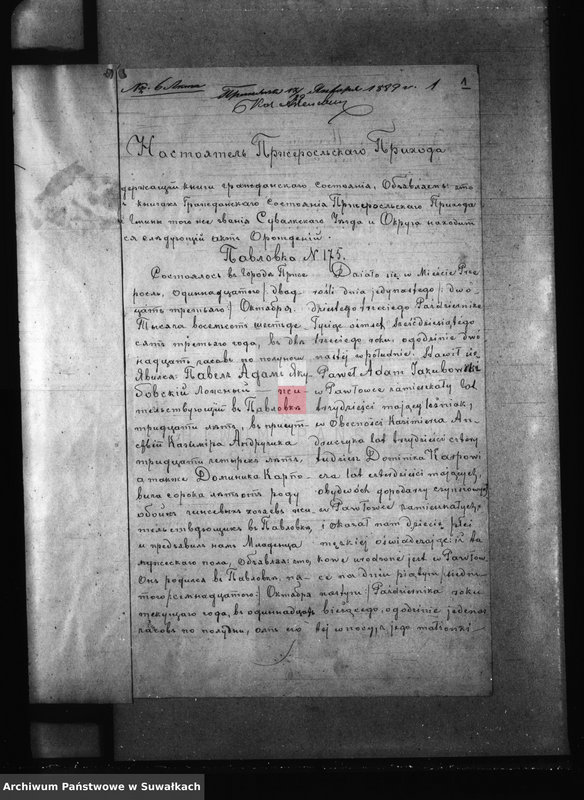 № 6 Пржеросль 18 Января 1889 г. 1 1
Настоятель Пржеросльскаго Прихода
держащий книги гражданскаго состояния, Объявляемъ: что
книгахъ Гражданскаго Состояния Пржеросльскаго Прихода
Гмины того же звания Сувалкскаго Уѣзда и Округа находит
ся слѣдующий актъ Орождений.
Павловка N 175.
Состоялось въ Городѣ Прже
росль, одиннадцатого /: двад
цать третьяго :/ Октября
Тысяча восемсотъ шестьде
сятъ третьяго года, въ две
надцать часовъ по полуноч
Явился Павелъ Адамъ Яку
бовский Лѣсный жи
тельствующий въ Павловкѣ
тридцати лѣтъ, въ присут
ствии Казимира Андружика
тридцати четырехъ лѣтъ,
а также Доминика Карпо
вича сорока лѣтъ отъ роду
обоихъ чиншевыхъ хозяевъ жи
тельствующихъ въ Павловкѣ,
и предъявилъ намъ Младенца
мужескаго пола, объявляя: что,
Онъ родился въ Павловкѣ, пя
того /: семнадцатого :/ Октября
текущаго года, въ одиннадцать
часовъ по полудни, отъ его
Działo się w Mieście Prze
rośli dnia jedynastego /: dwu
dziestego trzeciego Października
Tysiąc ośmset sześćdziesiątego
trzeciego roku, o godzinie dwu
nastej w południe. Stawił się
Paweł Adam Jakubowski
w Pawłowce zamieszkały lat
trzydzieści mający leśniak,
w Obecności Kazimierza An
drużyka lat trzydzieści cztery
tudzież Dominika Karpowi
cza lat czterdzieści mających,
obydwóch gospodarzy czynszowych
w Pawłowce zamieszkałych,
i okazał nam dziecię płci
męzkiej oświadczając: iż ta
kowe urodzone jest w Pawłow
ce na dniu piątym /: siedm
nastym :/ Października roku
bieżącego, o godzinie jedenas
tej w nocy, z jego małżonki
Archiwum Państwowe w Suwałkach